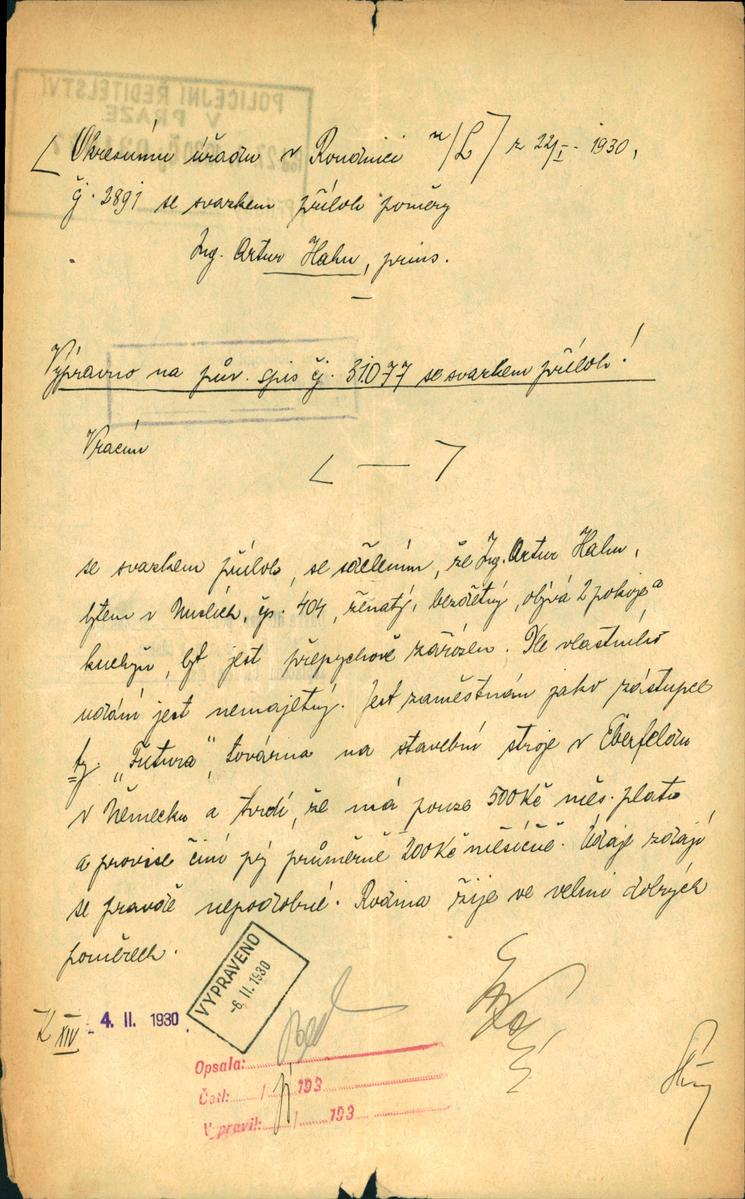 POLICEJNÍ ŘEDITELSTVÍ
V PRAZE
Okresnímu úřadu v Roudnici n/L z 22/I. 1930,
čj. 2891 se svazkem příloh poměry
Ing. Artur Hahn, přins.
Výpravno na pův. spis čj. 31077 se svazkem příloh!
Vracím
se svazkem příloh, se sdělením, že Ing. Artur Hahn,
bytem v Nuslích, čp. 404, ženatý, bezdětný, obývá 2 pokoje a
kuchyň, byt jest přepychově zařízen. Dle vlastního
udání jest nemajetný. Jest zaměstnán jako zástupce
fy „Futura" továrna na stavební stroje v Eberfeldu
v Německu a tvrdí, že má pouze 500 Kč měs. platu
a provise činí prý průměrně 200 Kč měsíčně. Údaje zdají
se pravdě nepodobné. Rodina žije ve velmi dobrých
poměrech.
VYPRAVENO
-6. II. 1930
XIV 4. II. 1930
Opsala:
Četl: / 193
Vypravil: / 193